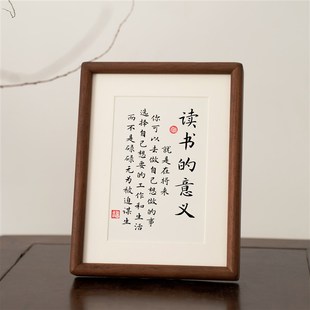 读书的意义
就是在将来
你可以去做自己想做的事
选择自己想要的工作和生活
而不是碌碌无为被迫谋生